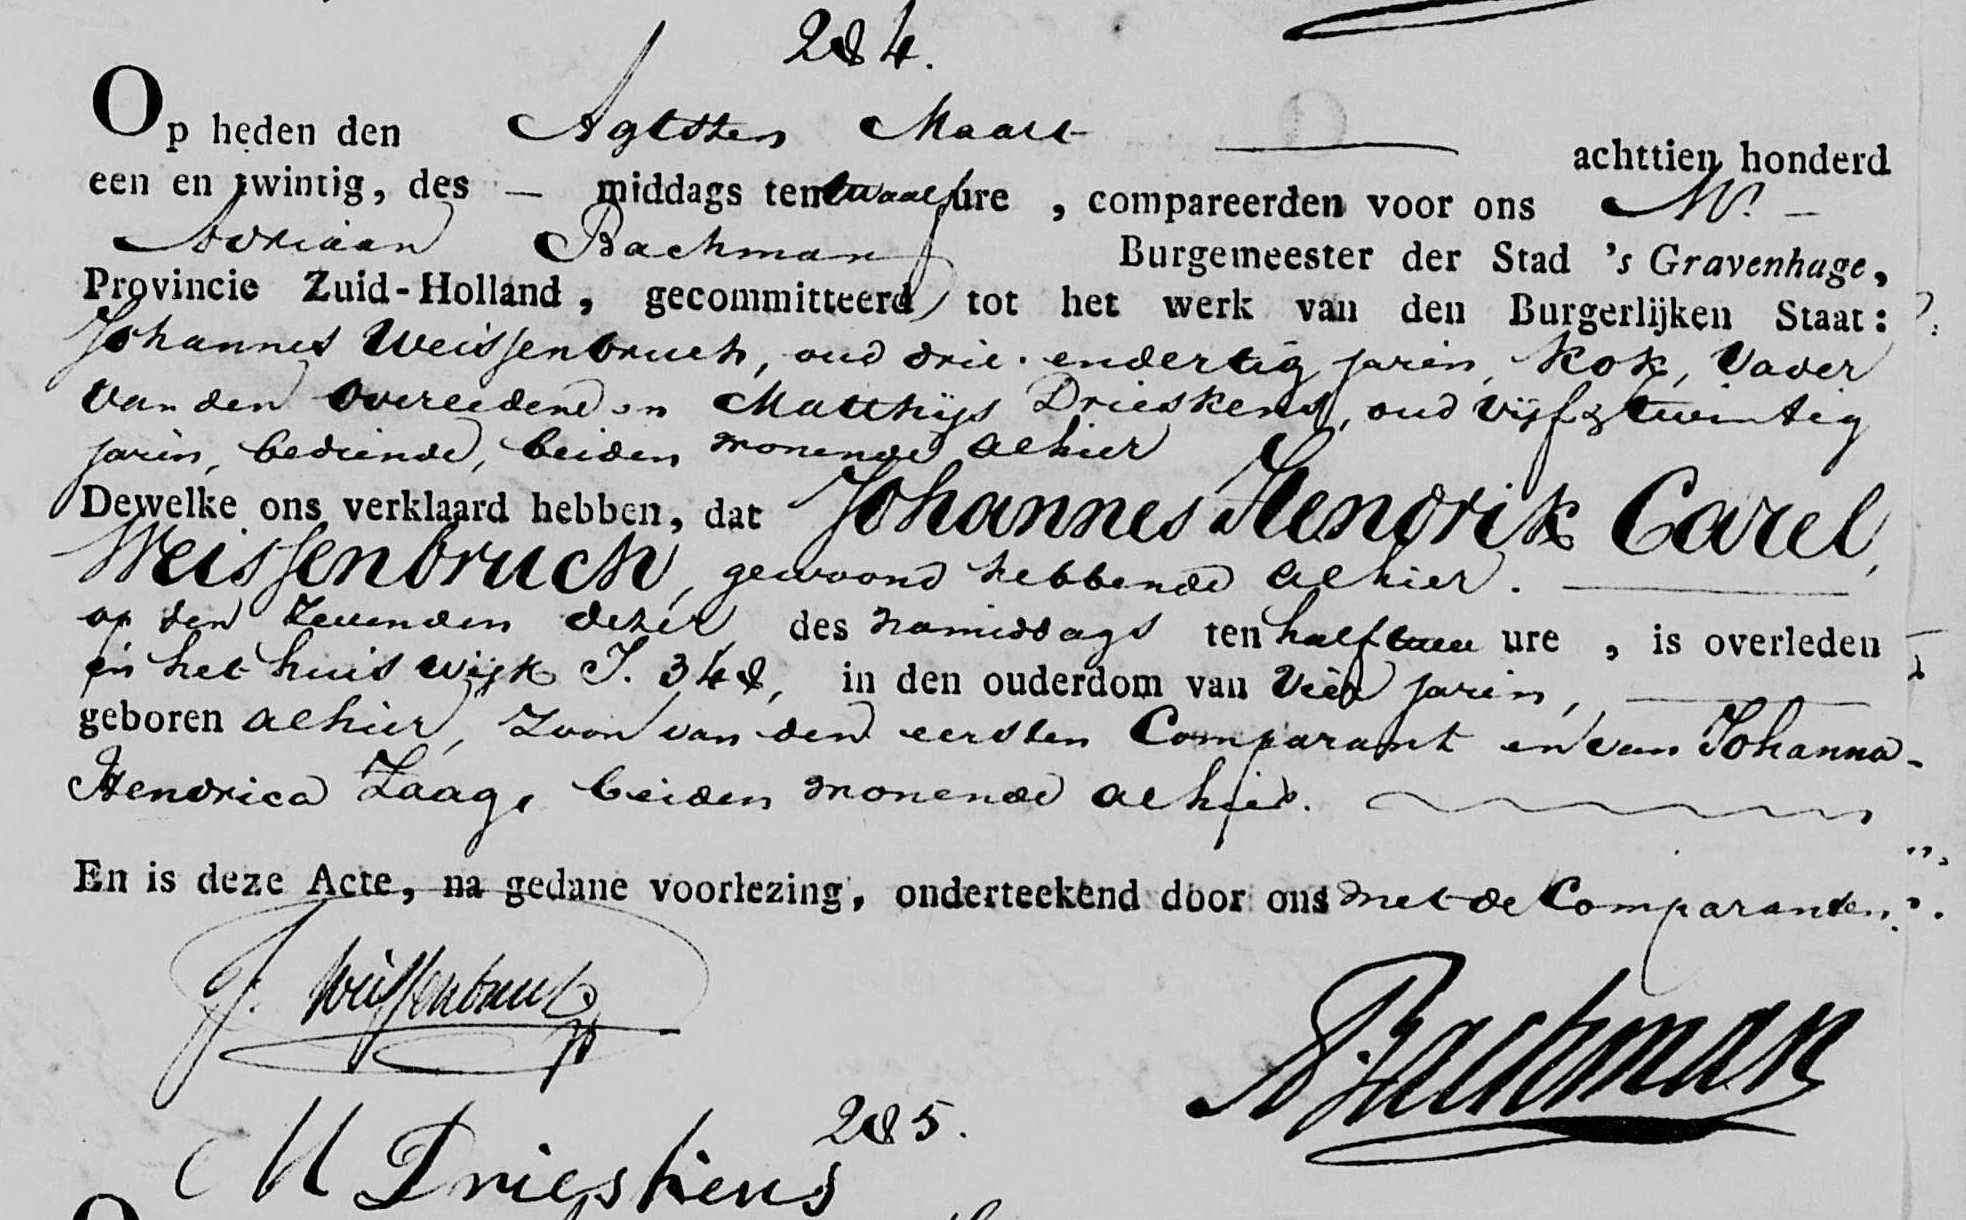 284.
Op heden den Agtsten Maart achttien honderd
een en twintig, des — middags ten twaalf ure , compareerden voor ons Mr. —
Adriaan Bachman Burgemeester der Stad 's Gravenhage,
Provincie Zuid-Holland, gecommitteerd tot het werk van den Burgerlijken Staat:
Johannes Weissenbruch, oud drie endertig jaren, kok, Vader
van den overledene en Matthijs Drieskens, oud vijf & twintig
jaren, bediende, beiden wonende alhier
Dewelke ons verklaard hebben, dat Johannes Hendrik Carel,
Weissenbruch, gewoond hebbende alhier.
op den zevenden dezer des namiddags ten half twee ure , is overleden
in het huis wijk I. 348, in den ouderdom van vier jaren,
geboren alhier, zoon van den eersten Comparant en van Johanna
Hendrica Zaag, beiden wonende alhier.
En is deze Acte, na gedane voorlezing, onderteekend door ons met de Comparanten.
J. Weissenbruch
A Bachman
285.
M Drieskens
O